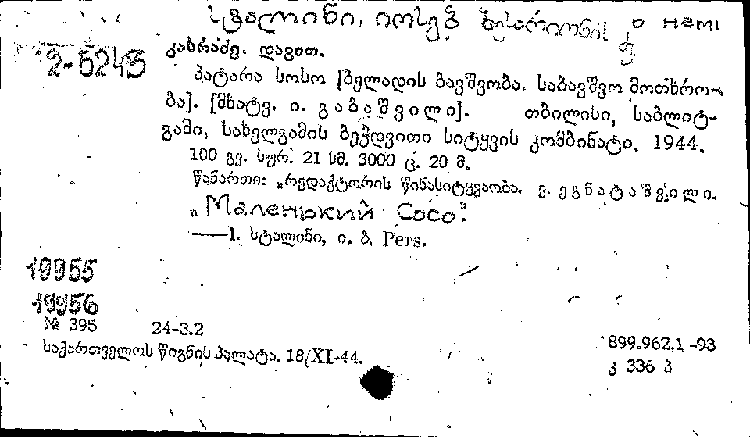 სტალინი, იოსებ ბესარიონის ძე о нем
2-5245
კასრაძე. დავით.
პატარა სოსო [ბელადის ბავშვობა. საბავშვო მოთხრო-
ბა]. [მხატვ. ი. გაბაშვილი]. თბილისი, საბლიტ-
გამი, სახელგამის ბეჭდვითი სიტყვის კომბინატი, 1944.
100 გვ. სურ. 21 სმ. 3000 ც. 20 მ.
წინართი: „რედაქტორის წინასიტყვაობა. ე. ეგნატაშვილი.
„Маленький Сосо".
—1. სტალინი, ი. ბ. Pers.
19955
19956
№ 395 24-3.2
საქართველოს წიგნის პალატა. 18/XI-44.
899.962.1-93
კ 336 პ